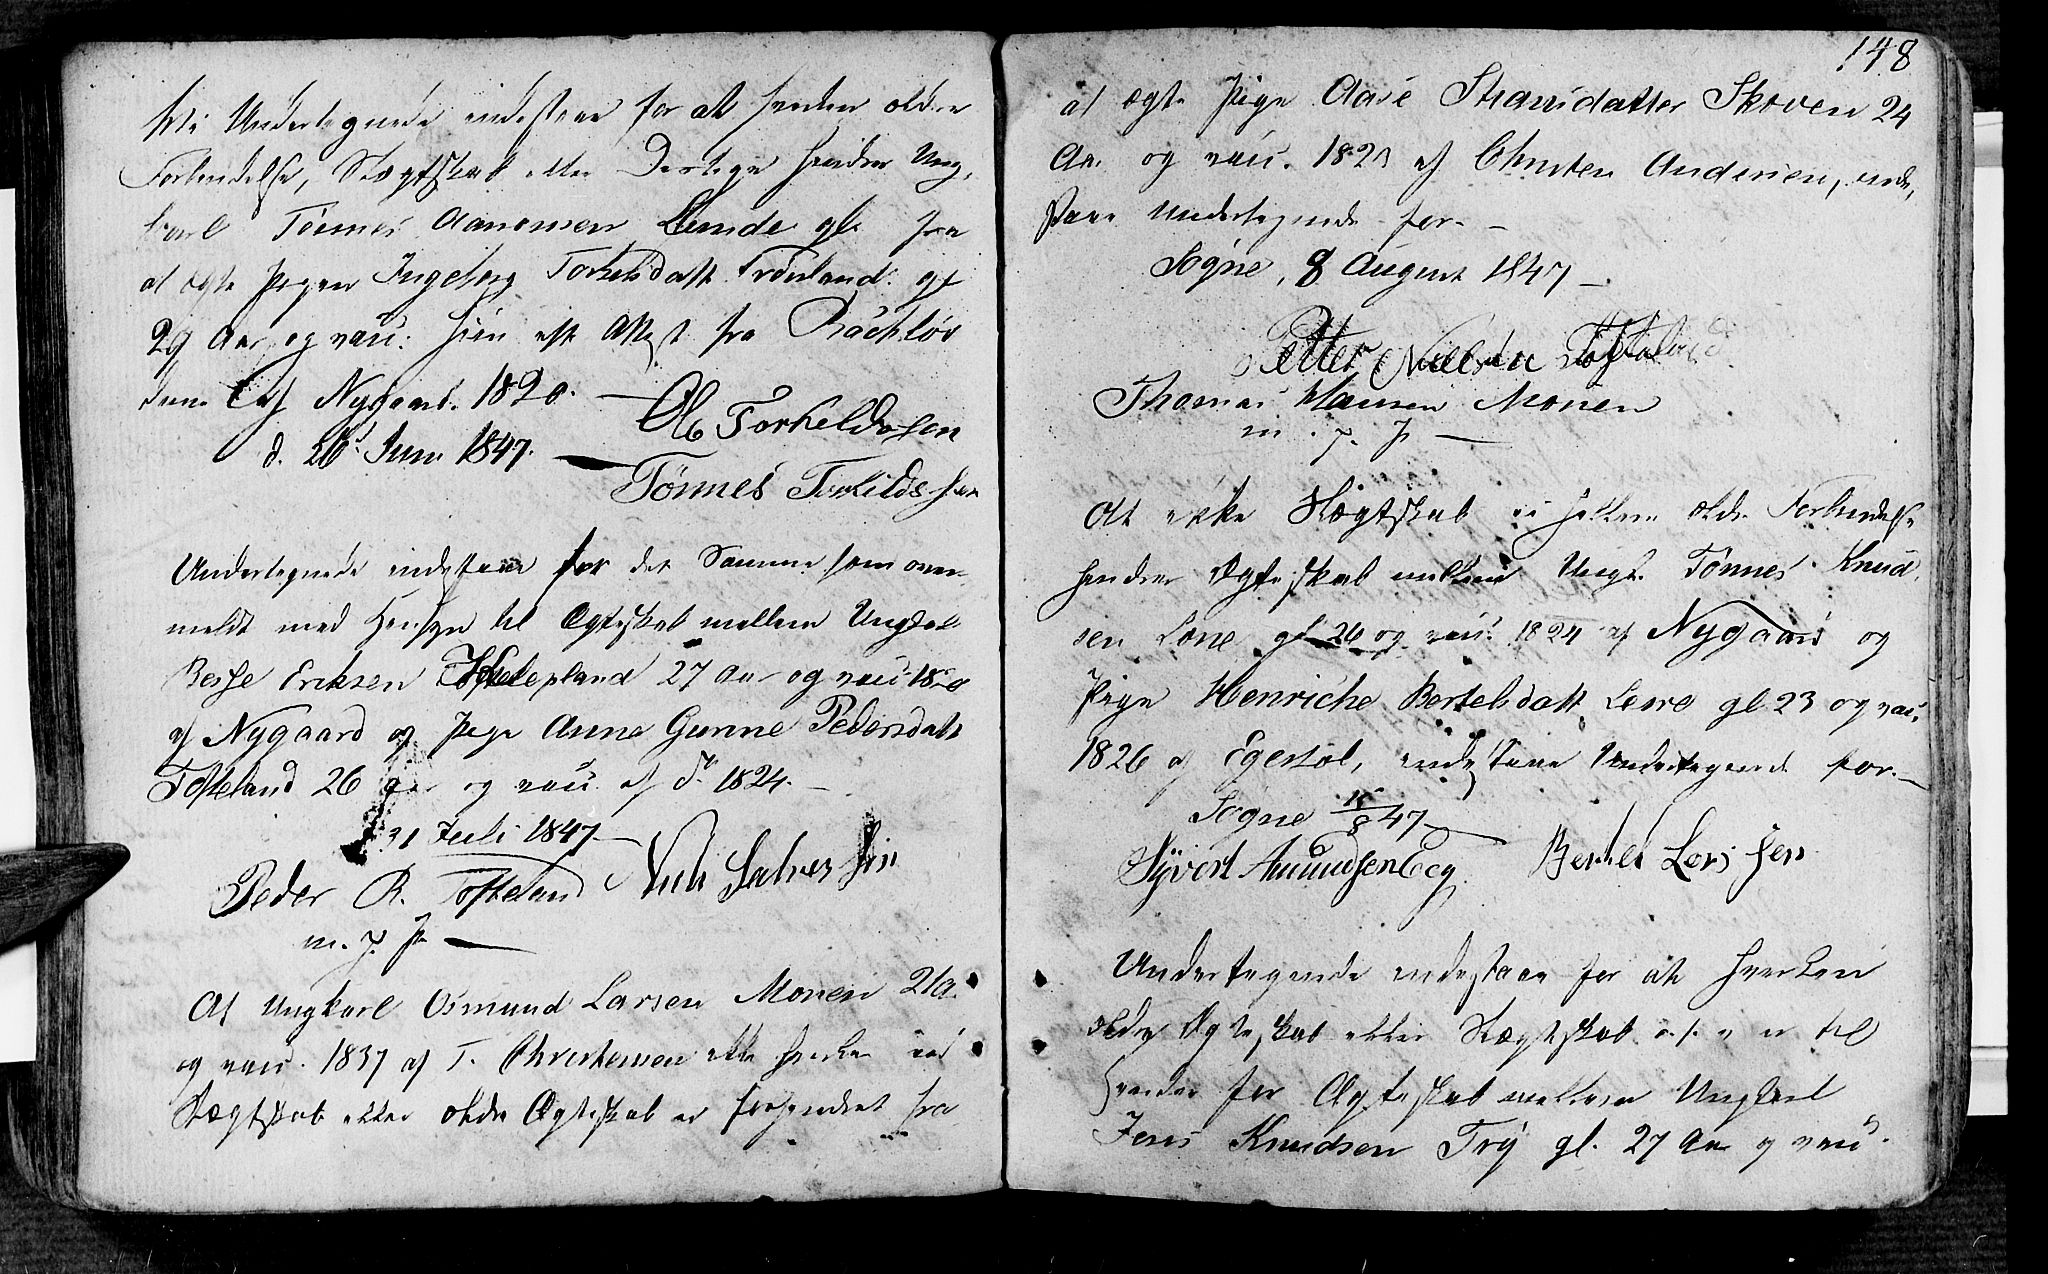 Vi Undertegnede indestaae for at hverken ældre
Forbindelse, Slægtskab eller Deslige hindrer Ung,
karl Tønnes Aanonsen Lunde gl. fra
at ægte Pigen Ingeborg Torkelsdatt. Trønland. gl
29 Aar, og vacc: hun eft. Attest fra
den Nygaard. 1820. —
d. 26' Juni 1847. — Ole Torkeldsen
Tønnes Torkilds sen
Undertegnede indestaae for det Samme som oven
meldt med Hensyn til Ægteskab mellem Ungkal
Berge Eriksen 27 Aar og vacc. 1820
af Nygaard og Pige Anne Gunne Pedersdatt
Tofteland 26 Aar og vacc. af do 1824. —
31 Juli 1847 —
Peder R. Tofteland
m. f. P. —
At Ungkarl Osmund Larsen Monen
og vacc. 1837 af T. Christensen ikke hverken ved
Slægtskab eller ældre Ægteskab er forhindret fra
148
at ægte Pige Aase Stiansdatter Skoven 24
Aar og vacc. 1823 af Christen Andersen, inde,
staae Undertegnede for. —
Søgne, 8 August 1847 —
Petter Nielsen Tofteland
Thomas Hansen Monen
m. f. P. —
At ikke Slægtskab ei heller ældre Forbindelse
hindrer Ægteskab mellem Ungk. Tønnes Knud,
sen Lone gl 26 og vacc. 1824 af Nygaard og
Pige Henriche Bertelsdatt. gl. 23 og vacc
1826 af Egestøl, indestaae Undertegnede for. —
Søgne 15/8 47 —
Syvert Amundsen Eeg Bertel Lars sen
Undertegnede indestaae for at hverken
ældre Ægteskab eller Slægtskab o. s. v er til
hinder for Ægteskab mellem Ungkarl
Jens Knudsen Try gl. 27 Aar og vacc.